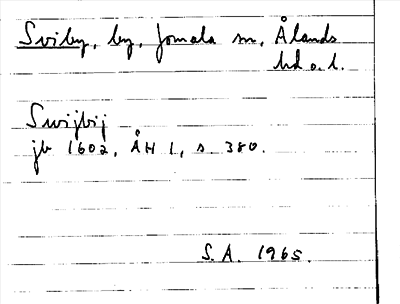 Sviby, by, Jomala sn, Ålands
hd o. l.
Swijbij
jb 1602, ÅH 1, s. 380.
S.A. 1965.